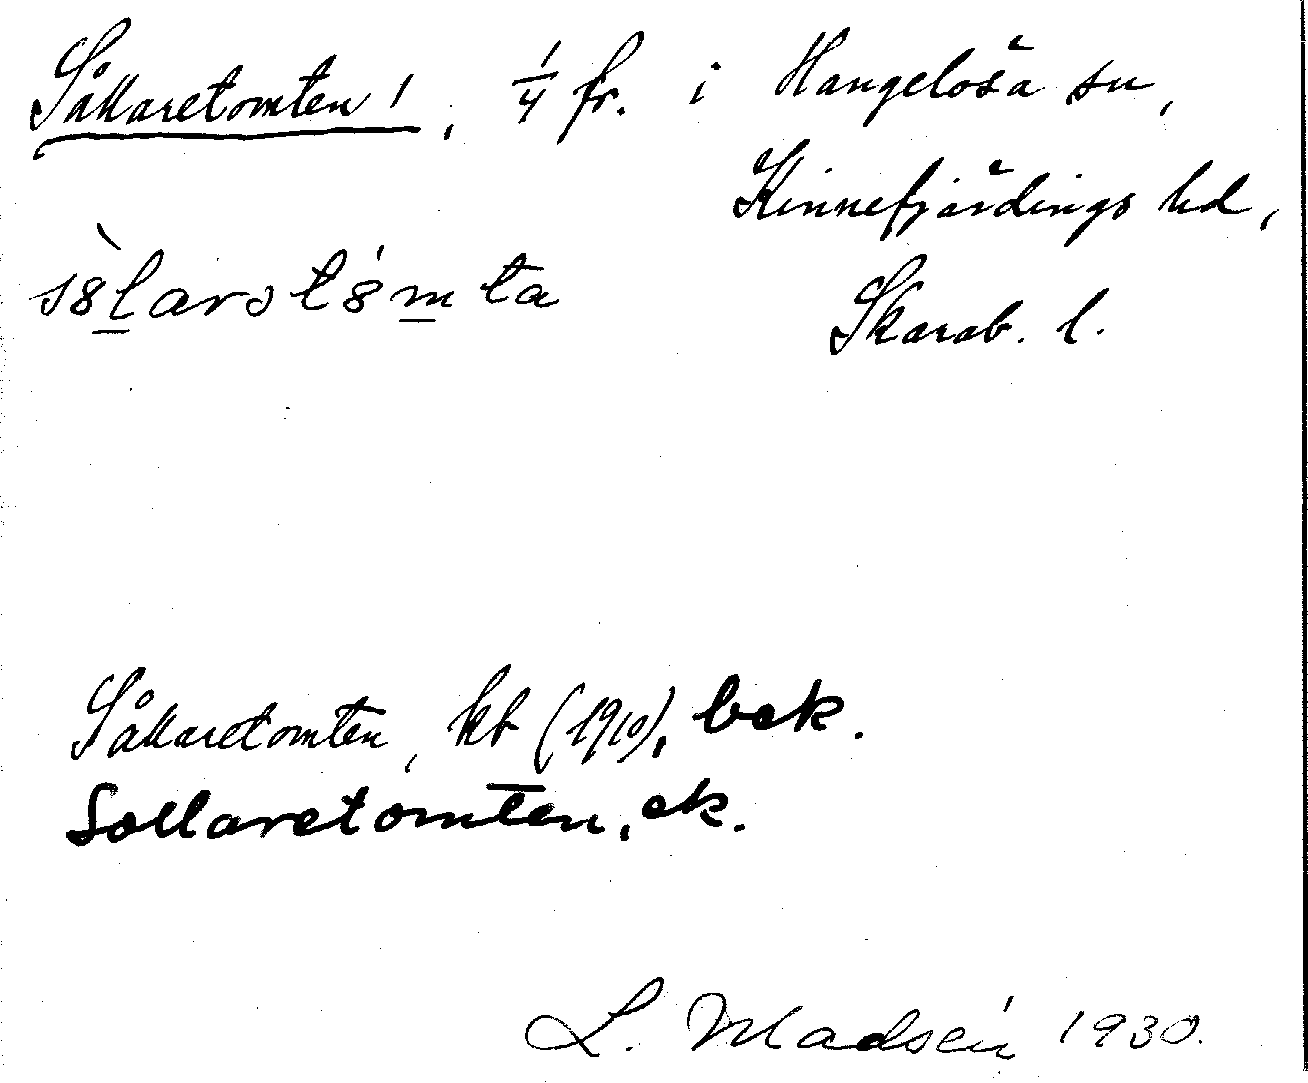 Sållaretomten!, 1/4 fr. i Hangelösa sn,
Kinnefjärdings hd,
Skarab. l.
Sållaretomten, kb (1910), bek.
Sollaretomten, ek.
L. Madsén 1930.